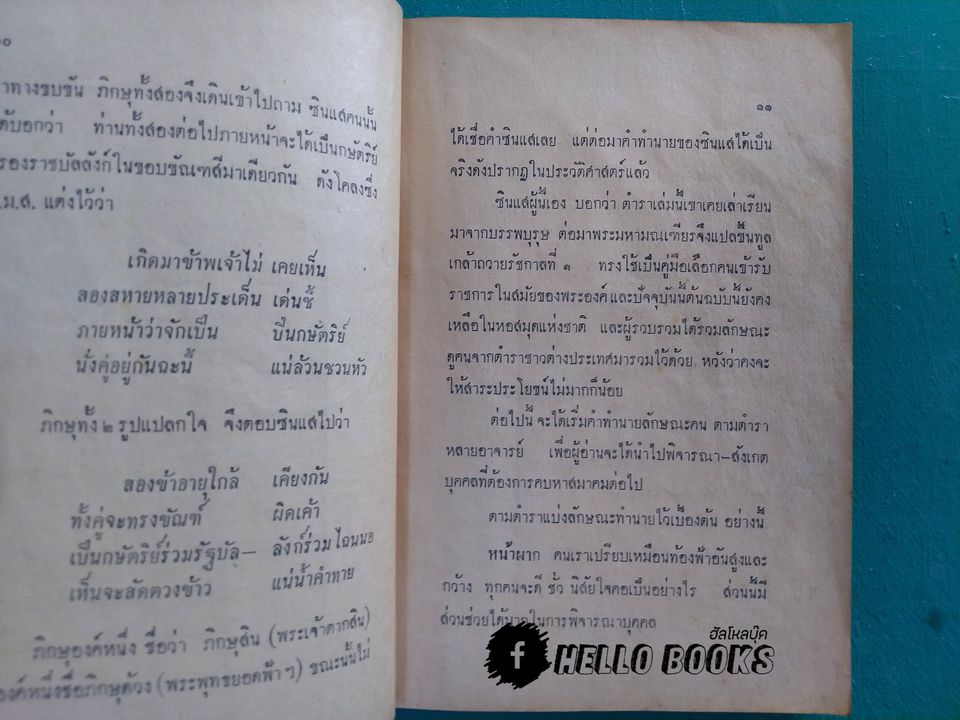 ๑๐
ทางขบขัน ภิกษุทั้งสองจึงเดินเข้าไปถาม ซินแสคนนั้น
บอกว่า ท่านทั้งสองต่อไปภายหน้าจะได้เป็นกษัตริย์
ครองราชบัลลังก์ในขอบขัณฑสีมาเดียวกัน ดังโคลงซึ่ง
น.ม.ส. แต่งไว้ว่า
เกิดมาข้าพเจ้าไม่ เคยเห็น
สองสหายหลายประเด็น เด่นชี้
ภายหน้าว่าจักเป็น ปิ่นกษัตริย์
นั่งคู่อยู่กันฉะนี้ แน่ล้วนชวนหัว
ภิกษุทั้ง ๒ รูปแปลกใจ จึงตอบซินแสไปว่า
สองข้าอายุใกล้ เคียงกัน
ทั้งคู่จะทรงขัณฑ์ ผิดเค้า
เป็นกษัตริย์ร่วมรัฐบัล– ลังก์ร่วม ไฉนนอ
เห็นจะสัดตวงข้าว แน่น้ำคำทาย
ภิกษุองค์หนึ่ง ชื่อว่า ภิกษุสิน (พระเจ้าตากสิน)
องค์หนึ่งชื่อภิกษุด้วง (พระพุทธยอดฟ้าฯ) ขณะนั้นไม่
๑๑
ได้เชื่อคำซินแสเลย แต่ต่อมาคำทำนายของซินแสได้เป็น
จริงดังปรากฏในประวัติศาสตร์แล้ว
ซินแสผู้นี้เอง บอกว่า ตำราเล่มนี้เขาเคยเล่าเรียน
มาจากบรรพบุรุษ ต่อมาพระมหามณเฑียรจึงแปลขึ้นทูล
เกล้าถวายรัชกาลที่ ๑ ทรงใช้เป็นคู่มือเลือกคนเข้ารับ
ราชการในสมัยของพระองค์ และปัจจุบันนี้ต้นฉบับนี้ยังคง
เหลือในหอสมุดแห่งชาติ และผู้รวบรวมได้รวมลักษณะ
ดูคนจากตำราชาวต่างประเทศมารวมไว้ด้วย หวังว่าคงจะ
ให้สาระประโยชน์ไม่มากก็น้อย
ต่อไปนี้ จะได้เริ่มคำทำนายลักษณะคน ตามตำรา
หลายอาจารย์ เพื่อผู้อ่านจะได้นำไปพิจารณา–สังเกต
บุคคลที่ต้องการคบหาสมาคมต่อไป
ตามตำราแบ่งลักษณะทำนายไว้เบื้องต้น อย่างนี้
หน้าผาก คนเราเปรียบเหมือนท้องฟ้าอันสูงและ
กว้าง ทุกคนจะดี ชั่ว นิสัยใจคอเป็นอย่างไร ส่วนนี้มี
ส่วนช่วยได้มากในการพิจารณาบุคคล
ฮัลโหลบุ๊ค
f HELLO BOOKS